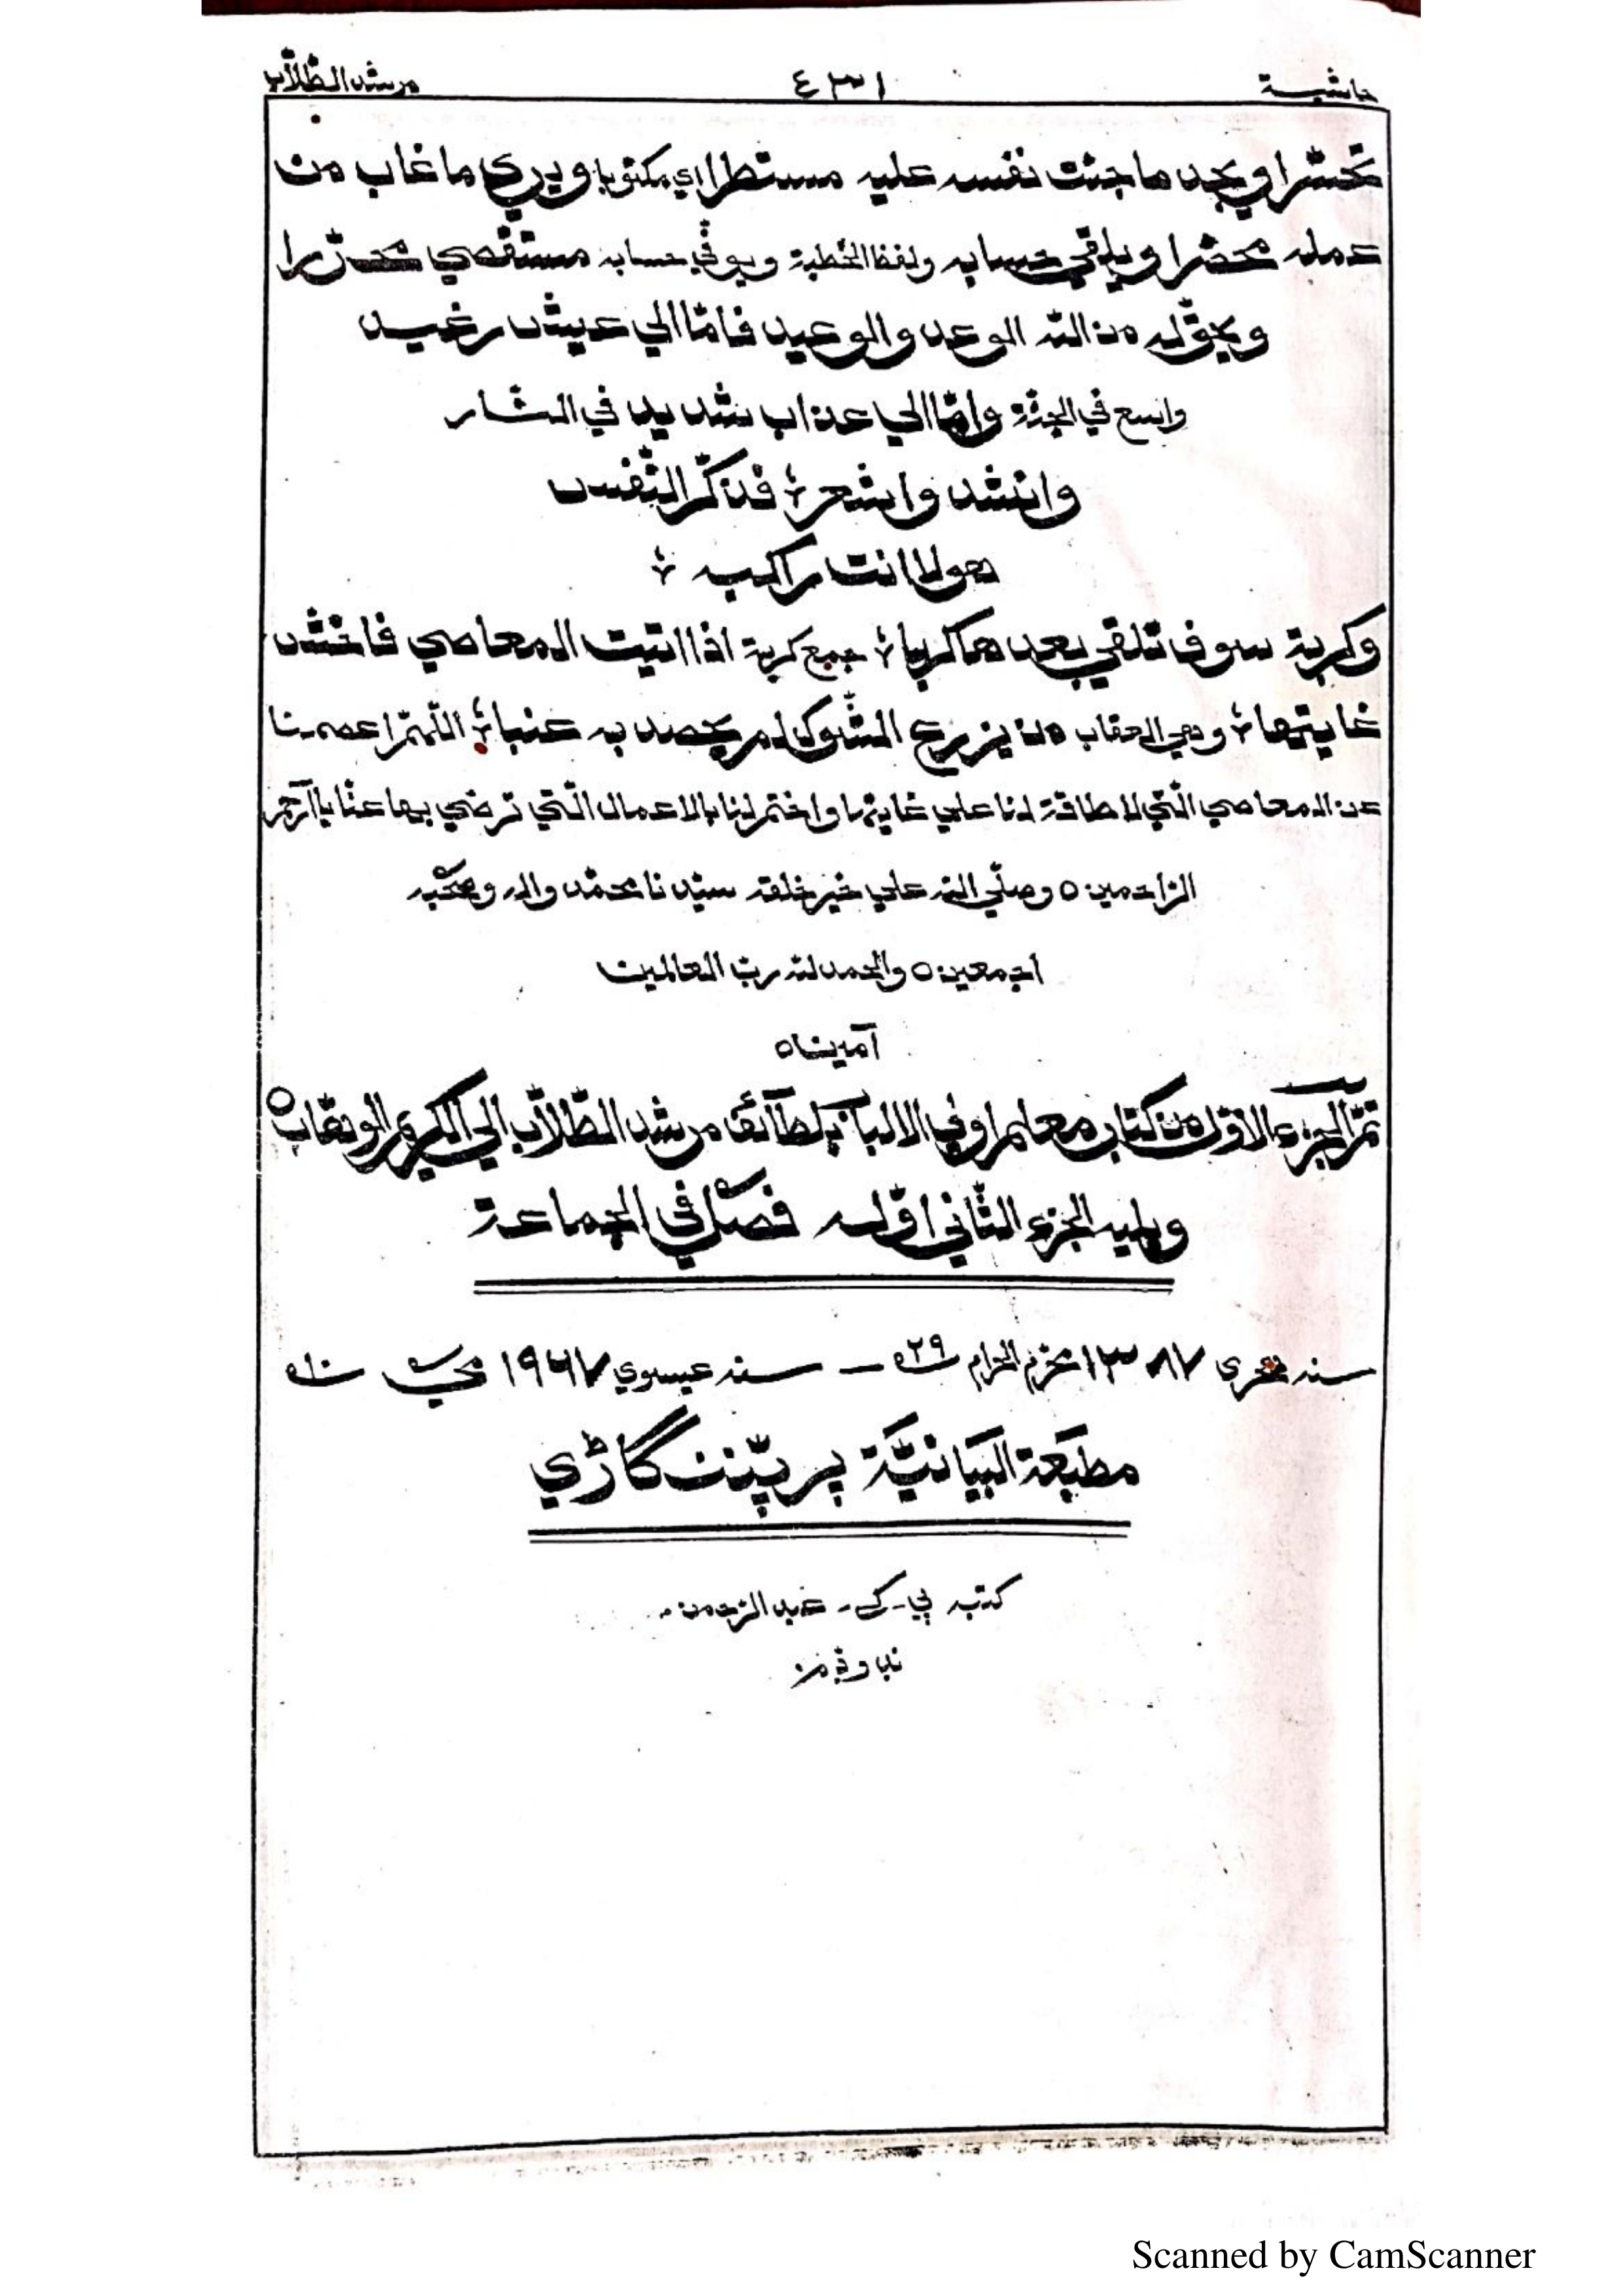 حاشية ٤٣١ مرشد الطّلّاب
تحسّرا ويجد ما جنت نفسه عليه مستطرا اي مكتوبا ويري ما غاب من
عمله محضرا ويلقي حسابه ولفظ الخطبة ويوفّي حسابه مستقصي محرّرا
ويحقّ له من الله الوعد والوعيد فامّا الي عيش رغيد
واسع في الجنّة وامّا الي عذاب شديد في النّار
وانشد واشعر ؛ فذكّر النّفس
هولا انت راكبه ؛
وكربة سوف تلقي بعدها كربا ؛ جمع كربة اذا اتيت المعاصي فاخش
غايتها ؛ وهي العقاب من يزرع الشّوك لم يحصد به عنبا ؛ اللّهمّ اعصمنا
عن المعاصي الّتي لا طاقة لنا علي غايتها واختم لنا بالاعمال الّتي ترضي بها عنّا يا ارحم
الرّاحمين ٥ وصلّي الله علي خير خلقه سيّدنا محمّد واله وصحبه
اجمعين ٥ والحمد لله ربّ العالمين
آمين ٥
تمّ الجزء الاوّل من كتاب معلم اولي الالباب بلطآئف مرشد الطّلّاب الي الكريم الوهّاب ٥
ويليه الجزء الثّاني اوّله فصل في الجماعة
سنه هجري ١٣٨٧ محرّم الحرام ٢٩ – سنه عيسوي ١٩٦٧ مي
مطبَعة البَيَانيَّة پرپّننگاڑي
كتبه پي - كي - عبد الرّحمن -
Scanned by CamScanner